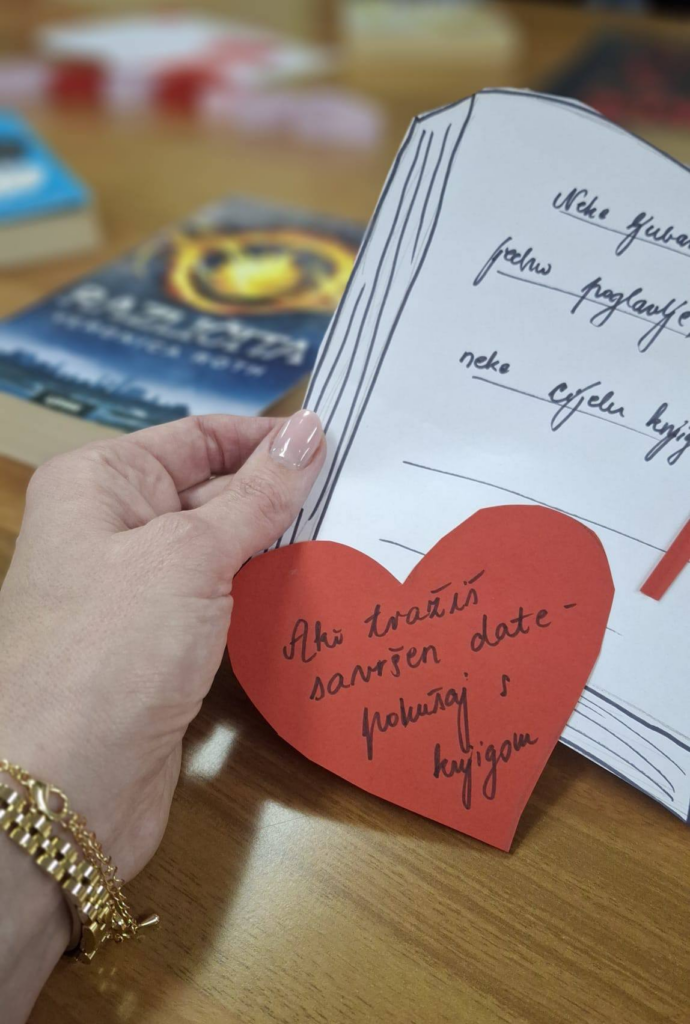 RAZLIČITA
VERONICA ROTH
Neke
jedno poglavlje,
neke cijelu
Ako tražiš
savršen date -
pokušaj s
knjigom